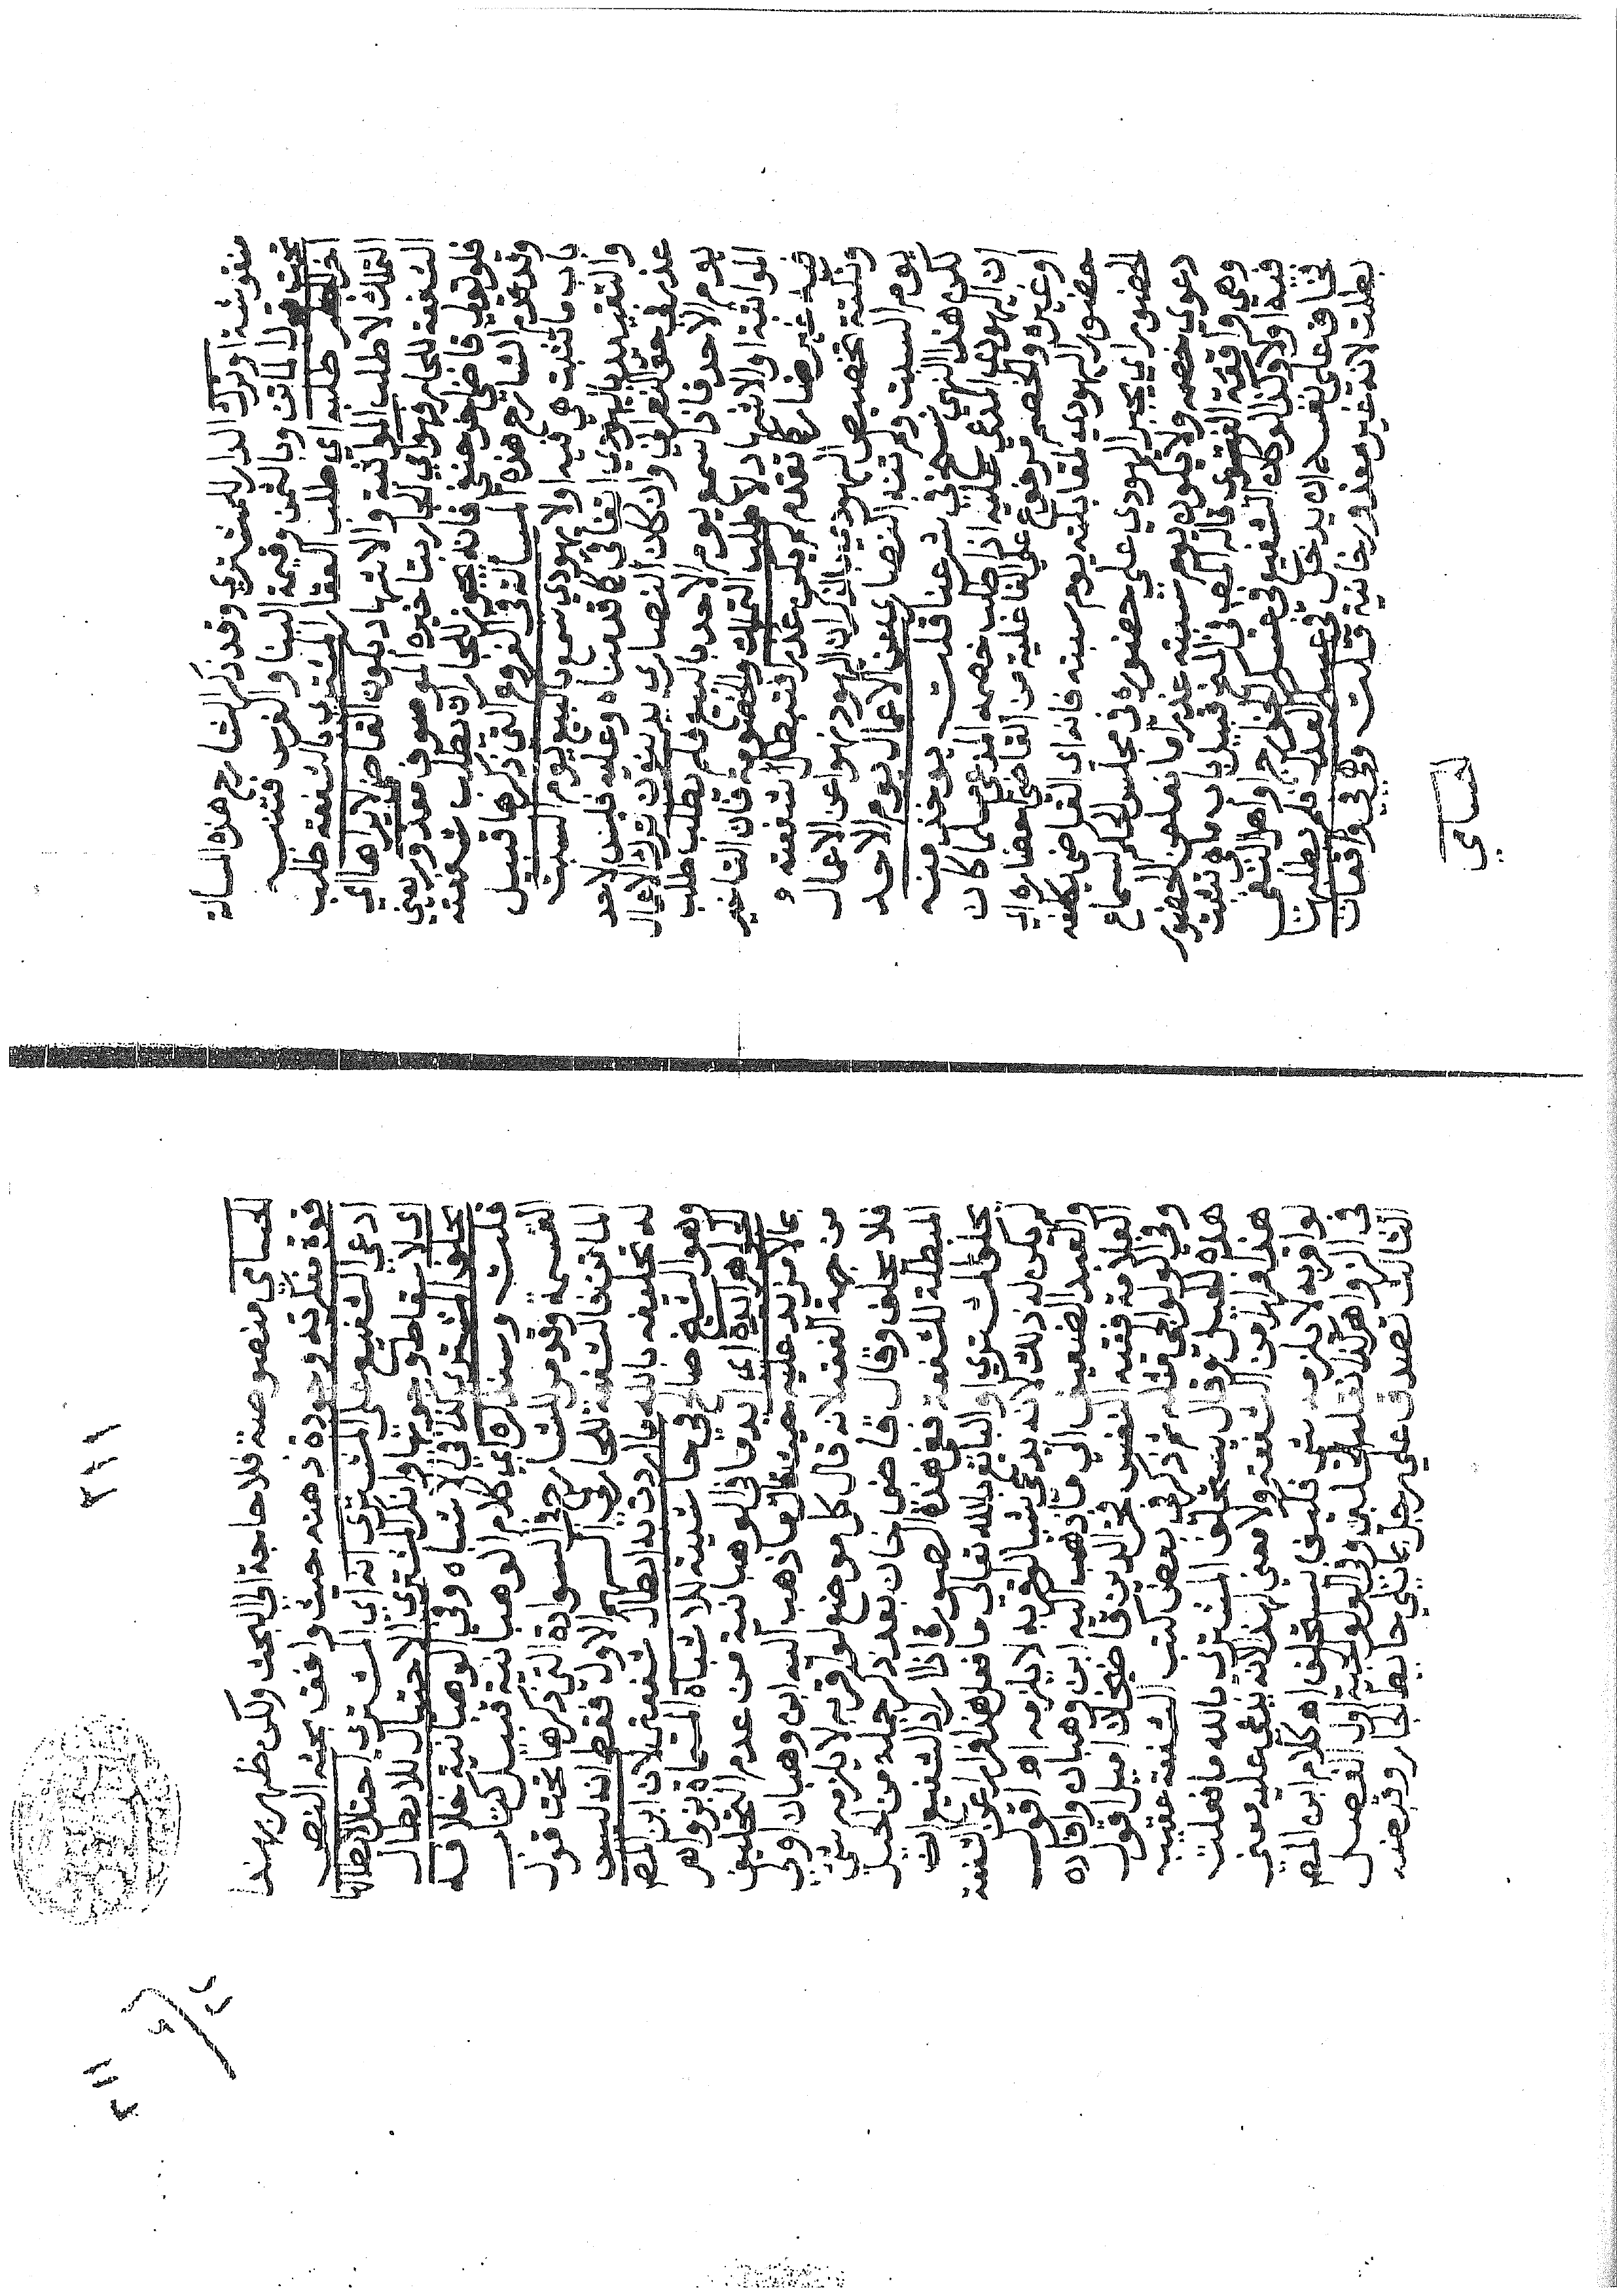 منقوشة او ترك الدار للمشتري وقد ذكر الشارح هذه المسالة
تحت قول الماتن وبالثمن وقيمة البنا والغرس فتنبه
اخر الشفيع طلبه اي طلب العقار المشتري بالشفعة طلب
التملك لا طلب المواثبة والاشهاد بكون القاضي لا يراها اي
الشفعة للجار فهو اي الجار بتاخيره الموصوف معذور يعني
فلو تولي قاضي اخر حنفي فانه يجوز للجار ان يطلب شفعته
وقد قدم الشارح هذه المسالة في الفروع التي ذكرها قبيل
باب ما تثبت هي فيه او لا يهودي سمع بالبيع يوم السبت
والتقييد باليهودي اتفاقي كما قدمناه وعليه فليس الاحد
عذر في حق النصراني وان كان النصاري يدينون بترك الاعمال
يوم الاحد فاذا سمع يوم الاحد بالبيع فلم يطلب طلب
المواثبة او الاشهاد لا طلب التملك والخصومة فان التاخير
فيه غير ضار كما تقدم لم يكن عذرا فتبطل شفعته و
ونكتة تخصيص اليهودي بالذكر ان اليهود نهوا عن الاعمال
يوم السبت ولم تنه النصاري عن الاعمال يوم الاحد
لكن هذا النهي نسخ في شرعنا قلت يوخذ منه
ان اليهودي المدعي عليه اذا طلب خصمه المدعي مسلما كان
او غيره والخصم مرفوع علي الفاعلية من القاضي احضاره اي
حضور اليهودي لمقابلته يوم سبته فانه اي القاضي يكلفه
الحضور اي يجبر اليهودي علي حضوره في مجلس الحكم لسماع
دعوي خصمه ولا يكون يوم سبته عذرا مانعا من الحضور
وهي واقعة الفتوي قاله المص في المنح قبيل باب ما تثبت هي
فيه او لا وكذا لو كان الشفيع في عسكر الخوارج واهل البغي
يخاف علي نفسه ان يدخل في عسكر العدل فلم يطلب
بطلت لانه غير معذور خانية قلت وهي في واقعات
لحسامي
٢١١
٢١١
الحسامي منصوصة فلا حاجة الي البحث ولكن ظهر بهذا
قوة تفكره وجودة ذهنه حيث وافق بحثه النص
ادعي الشفيع علي المشتري انه اي المشتري احتال لابطالها
اي لاسقاط وجوبها وانكر المشتري الاحتيال للابطال
يحلف المشتري كذا في الاشباه وفي الوهبانية خلافه
قلت وسنذكره اي كلام الوهبانية قبيل كتاب
القسمة وقدم الشارح في السوادة التي ذكرها تحت قول
الماتن فالشفعة للجار في السهم الاول فقط انه ليس
له تحليفه بالله ما اردت به ابطال شفعتي لان ابن المص
وهو الشيخ صالح في حاشيته للاشباه المسماة بزواهر
الجواهر ايده اي ايد ما في الوهبانية من عدم التحليف
بما لا مزيد عليه حيث قال ما ذهب اليه ابن وهبان اولي
من جهة الفقه لانه قال كل موضع لو اقر به لا يلزمه شي
فلا يحلف وقال قاضي خان بعد ذكر جملة من الحيل
المبطلة للشفعة ففي هذه الصورة اذا اراد الشفيع ان
يحلف المشتري او البايع بالله تعالي ما فعل هذا فرارا عن الشفعة
لم يكن له ذلك لانه يدعي شيا لو اقر به لا يلزمه اه اقول
والعبد الضعيف الي ما ذهب اليه ابن وهبان وافاده
العلامة فقيه النفس فخر الدين قاضيخان اميل اقول
وفي الولوالجي مثله ثم ذكر في بعض كتب الشفعة عقيب
هذه الحيل وقال يستحلف المشتري بالله ما فعلت
هذا فرارا من الشفعة ولا معني لهذا لانه يدعي عليه معني
لو اقر به لا يلزمه شي فكيف يستحلف اه كلام ابن المص
في الزواهر وفي الولوالجية اول الفصل
الثالث تصدق علي رجل بما يلي حايط الجار وقبضه